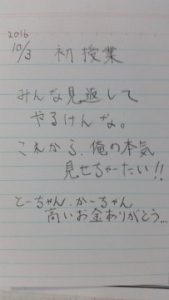 2016
10/3 初授業
みんな見返して
やるけんな。
これから、俺の本気
見せちゃーたい!!
とーちゃん、かーちゃん
高いお金ありがとう...